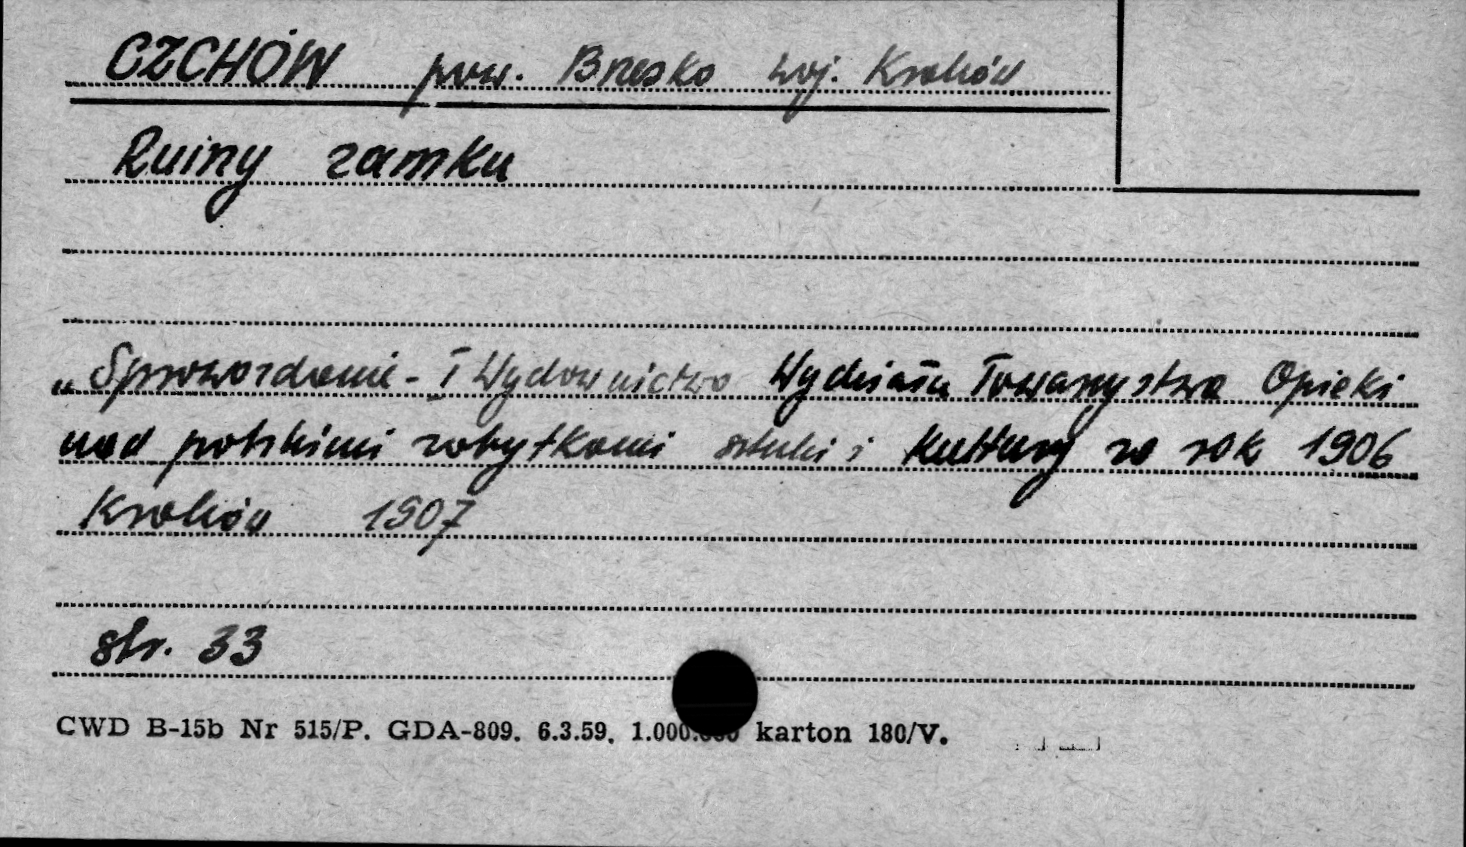 CZCHÓW pow. Brzesko woj. Kraków
Ruiny zamku
„Sprawozdanie - I Wydawnictwo Wydziału Towarzystwa Opieki
nad polskimi zabytkami sztuki i kultury za rok 1906
Kraków 1907
str. 33
CWD B-15b Nr 515/P. GDA-809. 6.3.59. 1.000.000 karton 180/V.